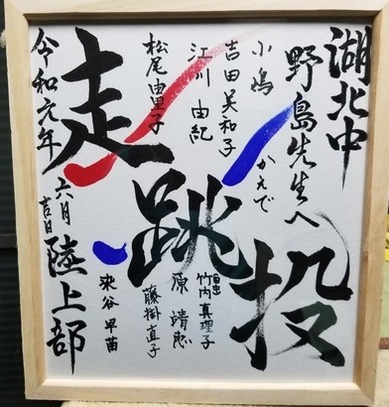 湖北中
野島先生へ
小嶋 かえで
吉田美和子
江川由紀
松尾由里子
走跳投
竹内真理子
原 靖恵
藤掛直子
染谷早苗
令和元年 六月 吉日
陸上部